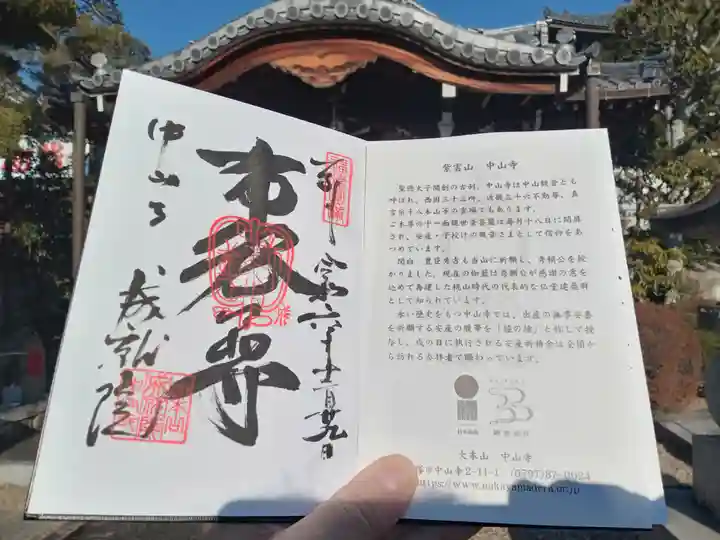 奉拝
令和六年十二月廿九日
布老尊
中山寺
成就院
紫雲山 中山寺
聖徳太子開創の古刹、中山寺は中山観音とも
呼ばれ、西国三十三所、近畿三十六不動尊、真
言宗十八本山等の霊場でもあります。
ご本尊の十一面観世音菩薩は毎月十八日に開扉
され、安産・子授けの観音さまとして信仰をあ
つめています。
関白 豊臣秀吉も当山に祈願し、秀頼公を授
かりました。現在の伽藍は秀頼公が感謝の意を
込めて再建した桃山時代の代表的な仏堂建築群
として知られています。
永い歴史をもつ中山寺では、出産の無事安泰
を祈願する安産の腹帯を「鐘の緒」と称して授
与し、戌の日に執行される安産祈祷会は全国か
ら訪れる参拝者で賑わっています。
日本遺産
大本山 中山寺
市中山寺2-11-1 (0797)87-0024
https://www.nakayamadera.or.jp